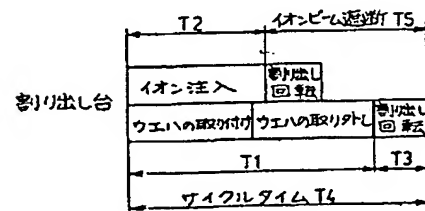 T2
イオンビーム遮断 T5
イオン注入
割り出し
回転
割り出し台
ウエハの取り付け
ウエハの取り外し
割出し
回転
T1
T3
サイクルタイム T4